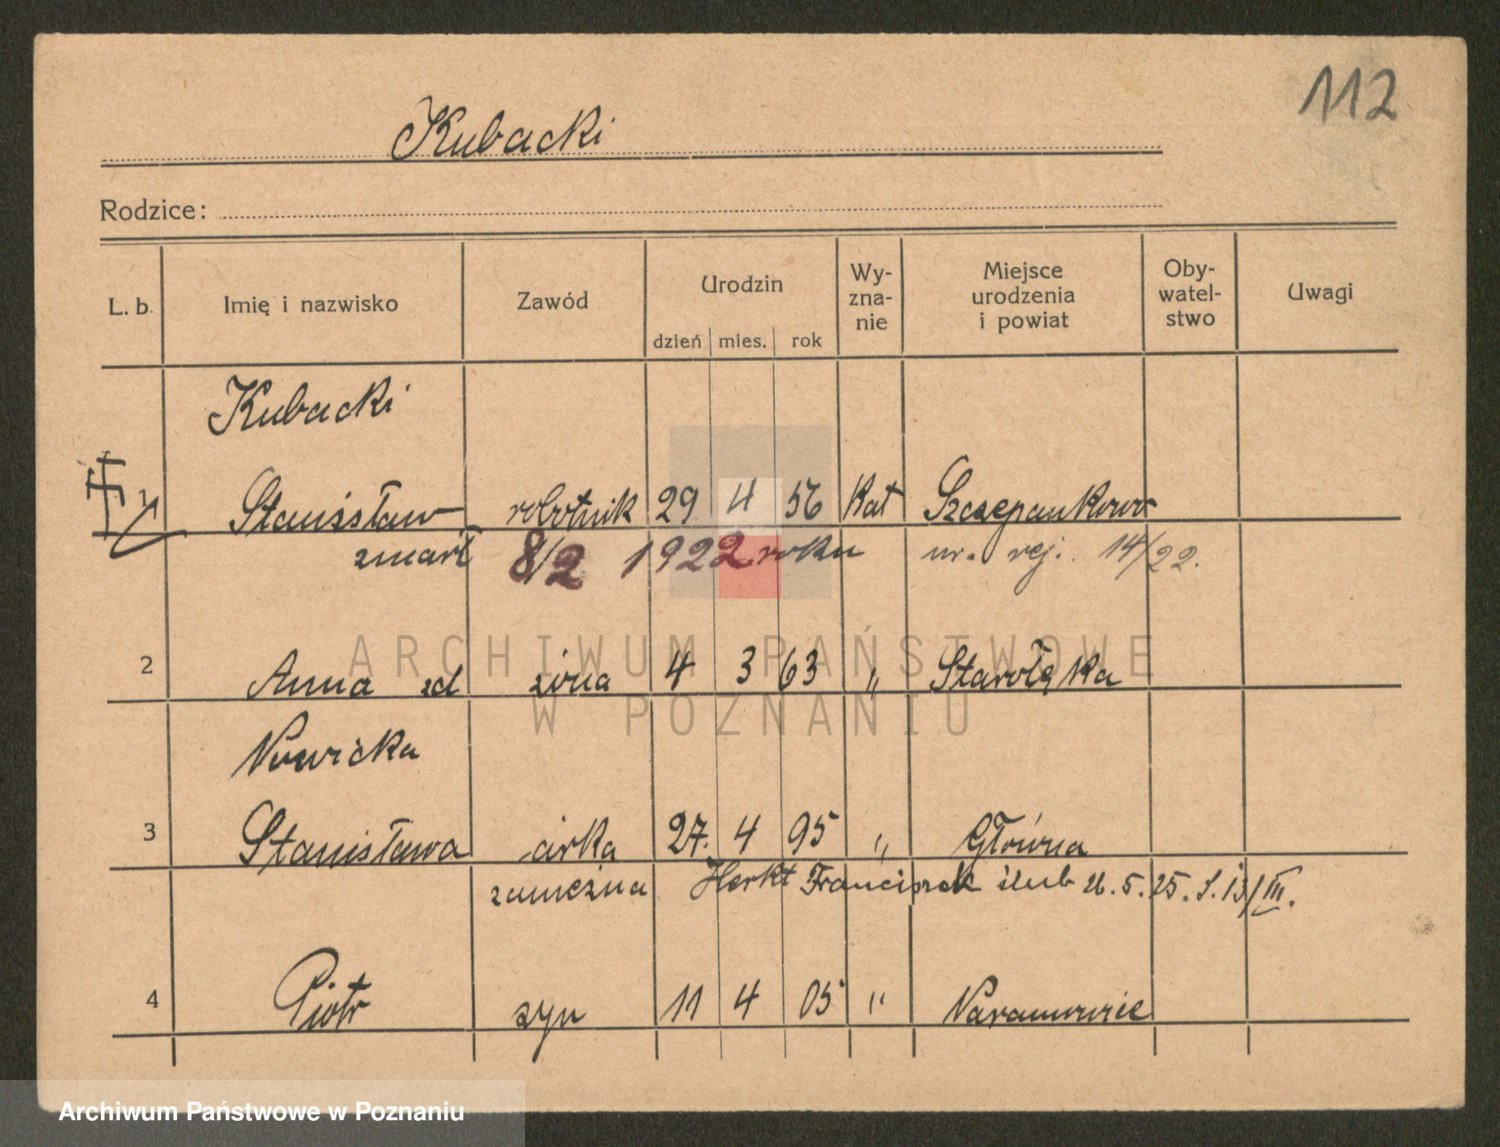 112
Kubacki
Rodzice:
L. b. Imię i nazwisko Zawód Urodzin dzień mies. rok Wy-zna-nie Miejsce urodzenia i powiat Oby-watel-stwo Uwagi
Kubacki
1 Stanisław robotnik 29 4 56 Kat Szczepankowo
zmarł 8/2 1922 roku nr. rej. 14/22.
2 Anna zd żona 4 3 63 " Starołęka
Nowicka
3 Stanisława córka 27. 4 95 " Główna
zamężna Herkt Franciszek ślub 26. 5. 25. S. 13/III.
4 Piotr syn 11 4 05 " Naramowice
ARCHIWUM PAŃSTWOWE
W POZNANIU
Archiwum Państwowe w Poznaniu